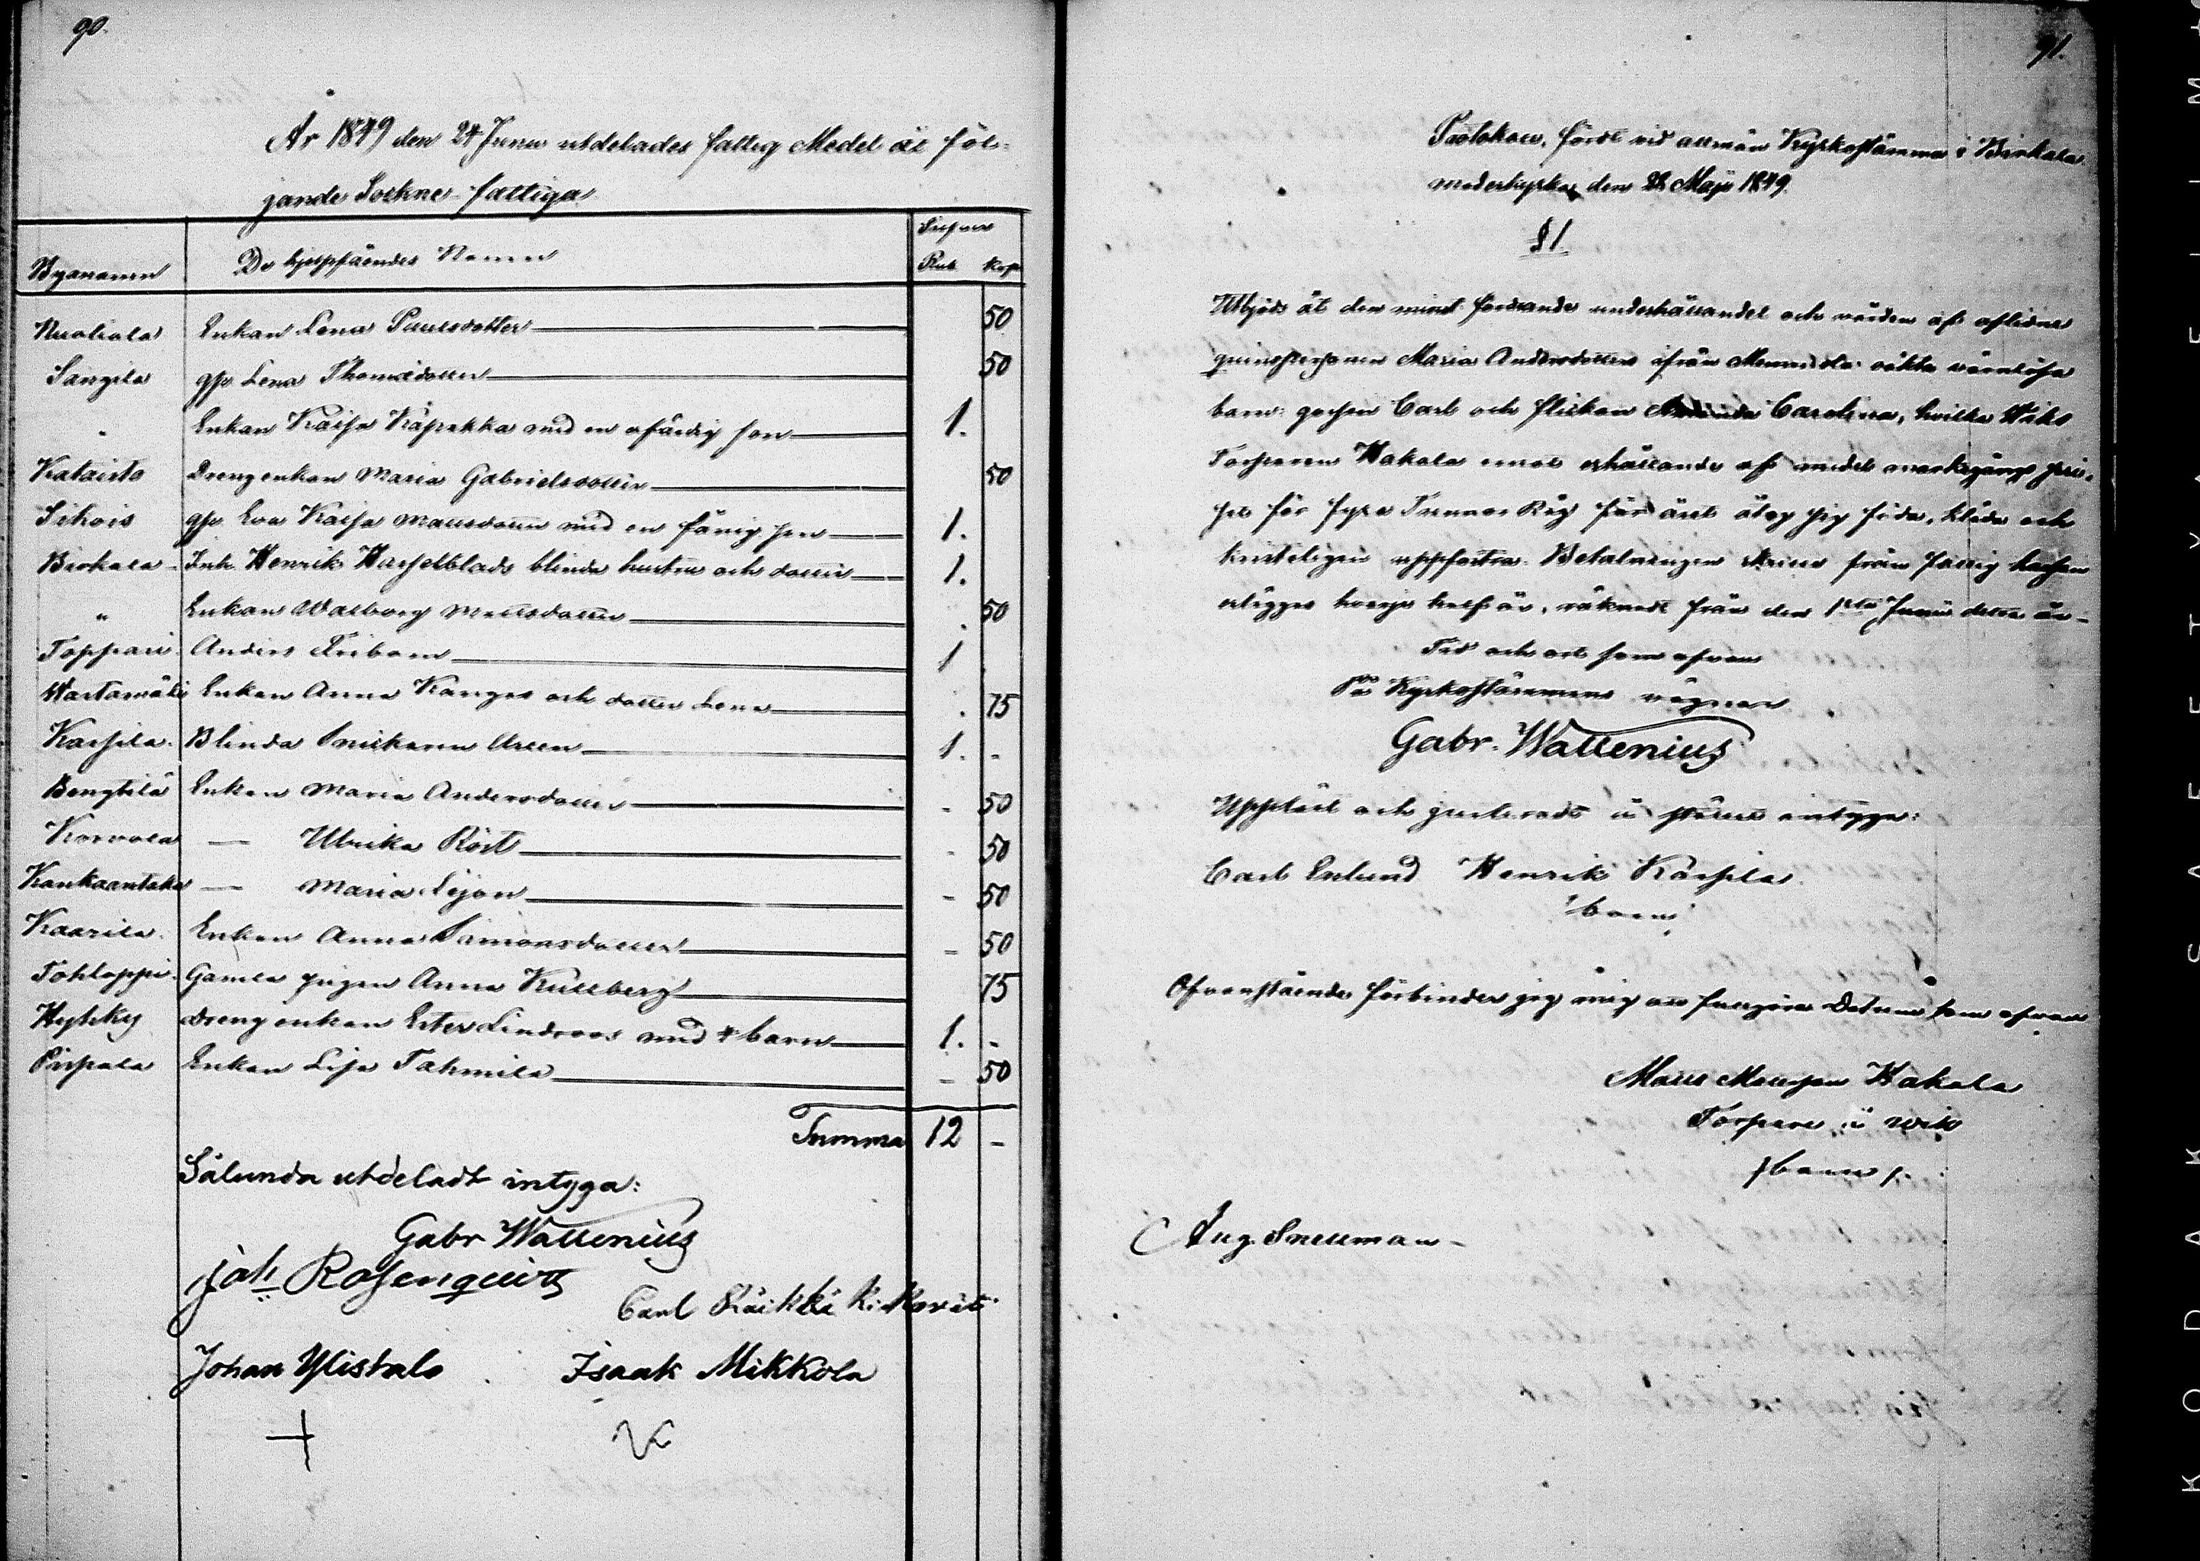 90.
År 1849 den 24 Junii utdelades fattig Medel åt föl-
jande Sockne-fattiga
Byanamn De hjelpfåendes Namn Silfver Rub Kop
Nuoliala Enkan Lena Paulsdotter 50
Sangila gp. Lena Thomædotter 50
" Enkan Kaisa Käpäkkä med en ofärdig son 1.
Kataisto Drengenkan Maria Gabrielsdotter 50
Sikois gp. Eva Kaisa Mattsdotter med en fånig son 1.
Birkala Inh. Henrik Hasselblads blinda hustru och dotter 1.
" Enkan Walborg Mattsdotter . 50
Toppari Anders Fribom 1
Wartamäki Enkan Anna Kangas och dotter Lena . 75
Karsila. Blinda Snickaren Ureen 1. -
Bengtilä Enkan Maria Andersdotter - 50
Korvola — Ulrika Röst - 50
Kankaantaka — Maria Lejon - 50
Kaarila. Enkan Anna Simonsdotter - 50
Tohloppi. Gamla pigan Anna Kullberg 75
Hyhky Drengenkan Ester Lindroos med 4 barn 1. -
Pispala Enkan Lisa Tahmela - 50
Summa 12 -
Sålunda utdeladt intyga:
Gabr Wallenius
Joh Rosenqvist
Carl Räikkä
Johan Ylistalo Isaak Mikkola
91.
Protokoll, fördt vid allmän Kyrkostämma i Birkala
moderkyrka den 28 Maji 1849.
§ 1
Utbjöds åt den minst fordrande underhållandet och vården af aflidne
qvinspersonen Maria Andersdotters ifrån oäkta värnlösa
barn: gossen Carl och flickan Carolina, hvilka Wiks
Torparen Hakala emot erhållande af medel markegångs pri-
set för fyra Tunnor Råg för året åtog sig föda, kläda och
kristeligen uppfostra. Betalningen från fattig kassan
erlägges hvarje half år, räknadt från den 1sta Junii detta år.-
Tid och ort som ofvan
På Kyrkostämmans vägnar
Gabr. Wallenius
Uppläst och justeradt å stället intyga:
Carl Enlund Henrik Kärsilä.
Ofvanstående förbinder jag mig att fullgöra Datum som ofvan
Matts Mattsson Hakala
Torpare å Wik
Aug. Snellman-
KODAK SAFETY FILM